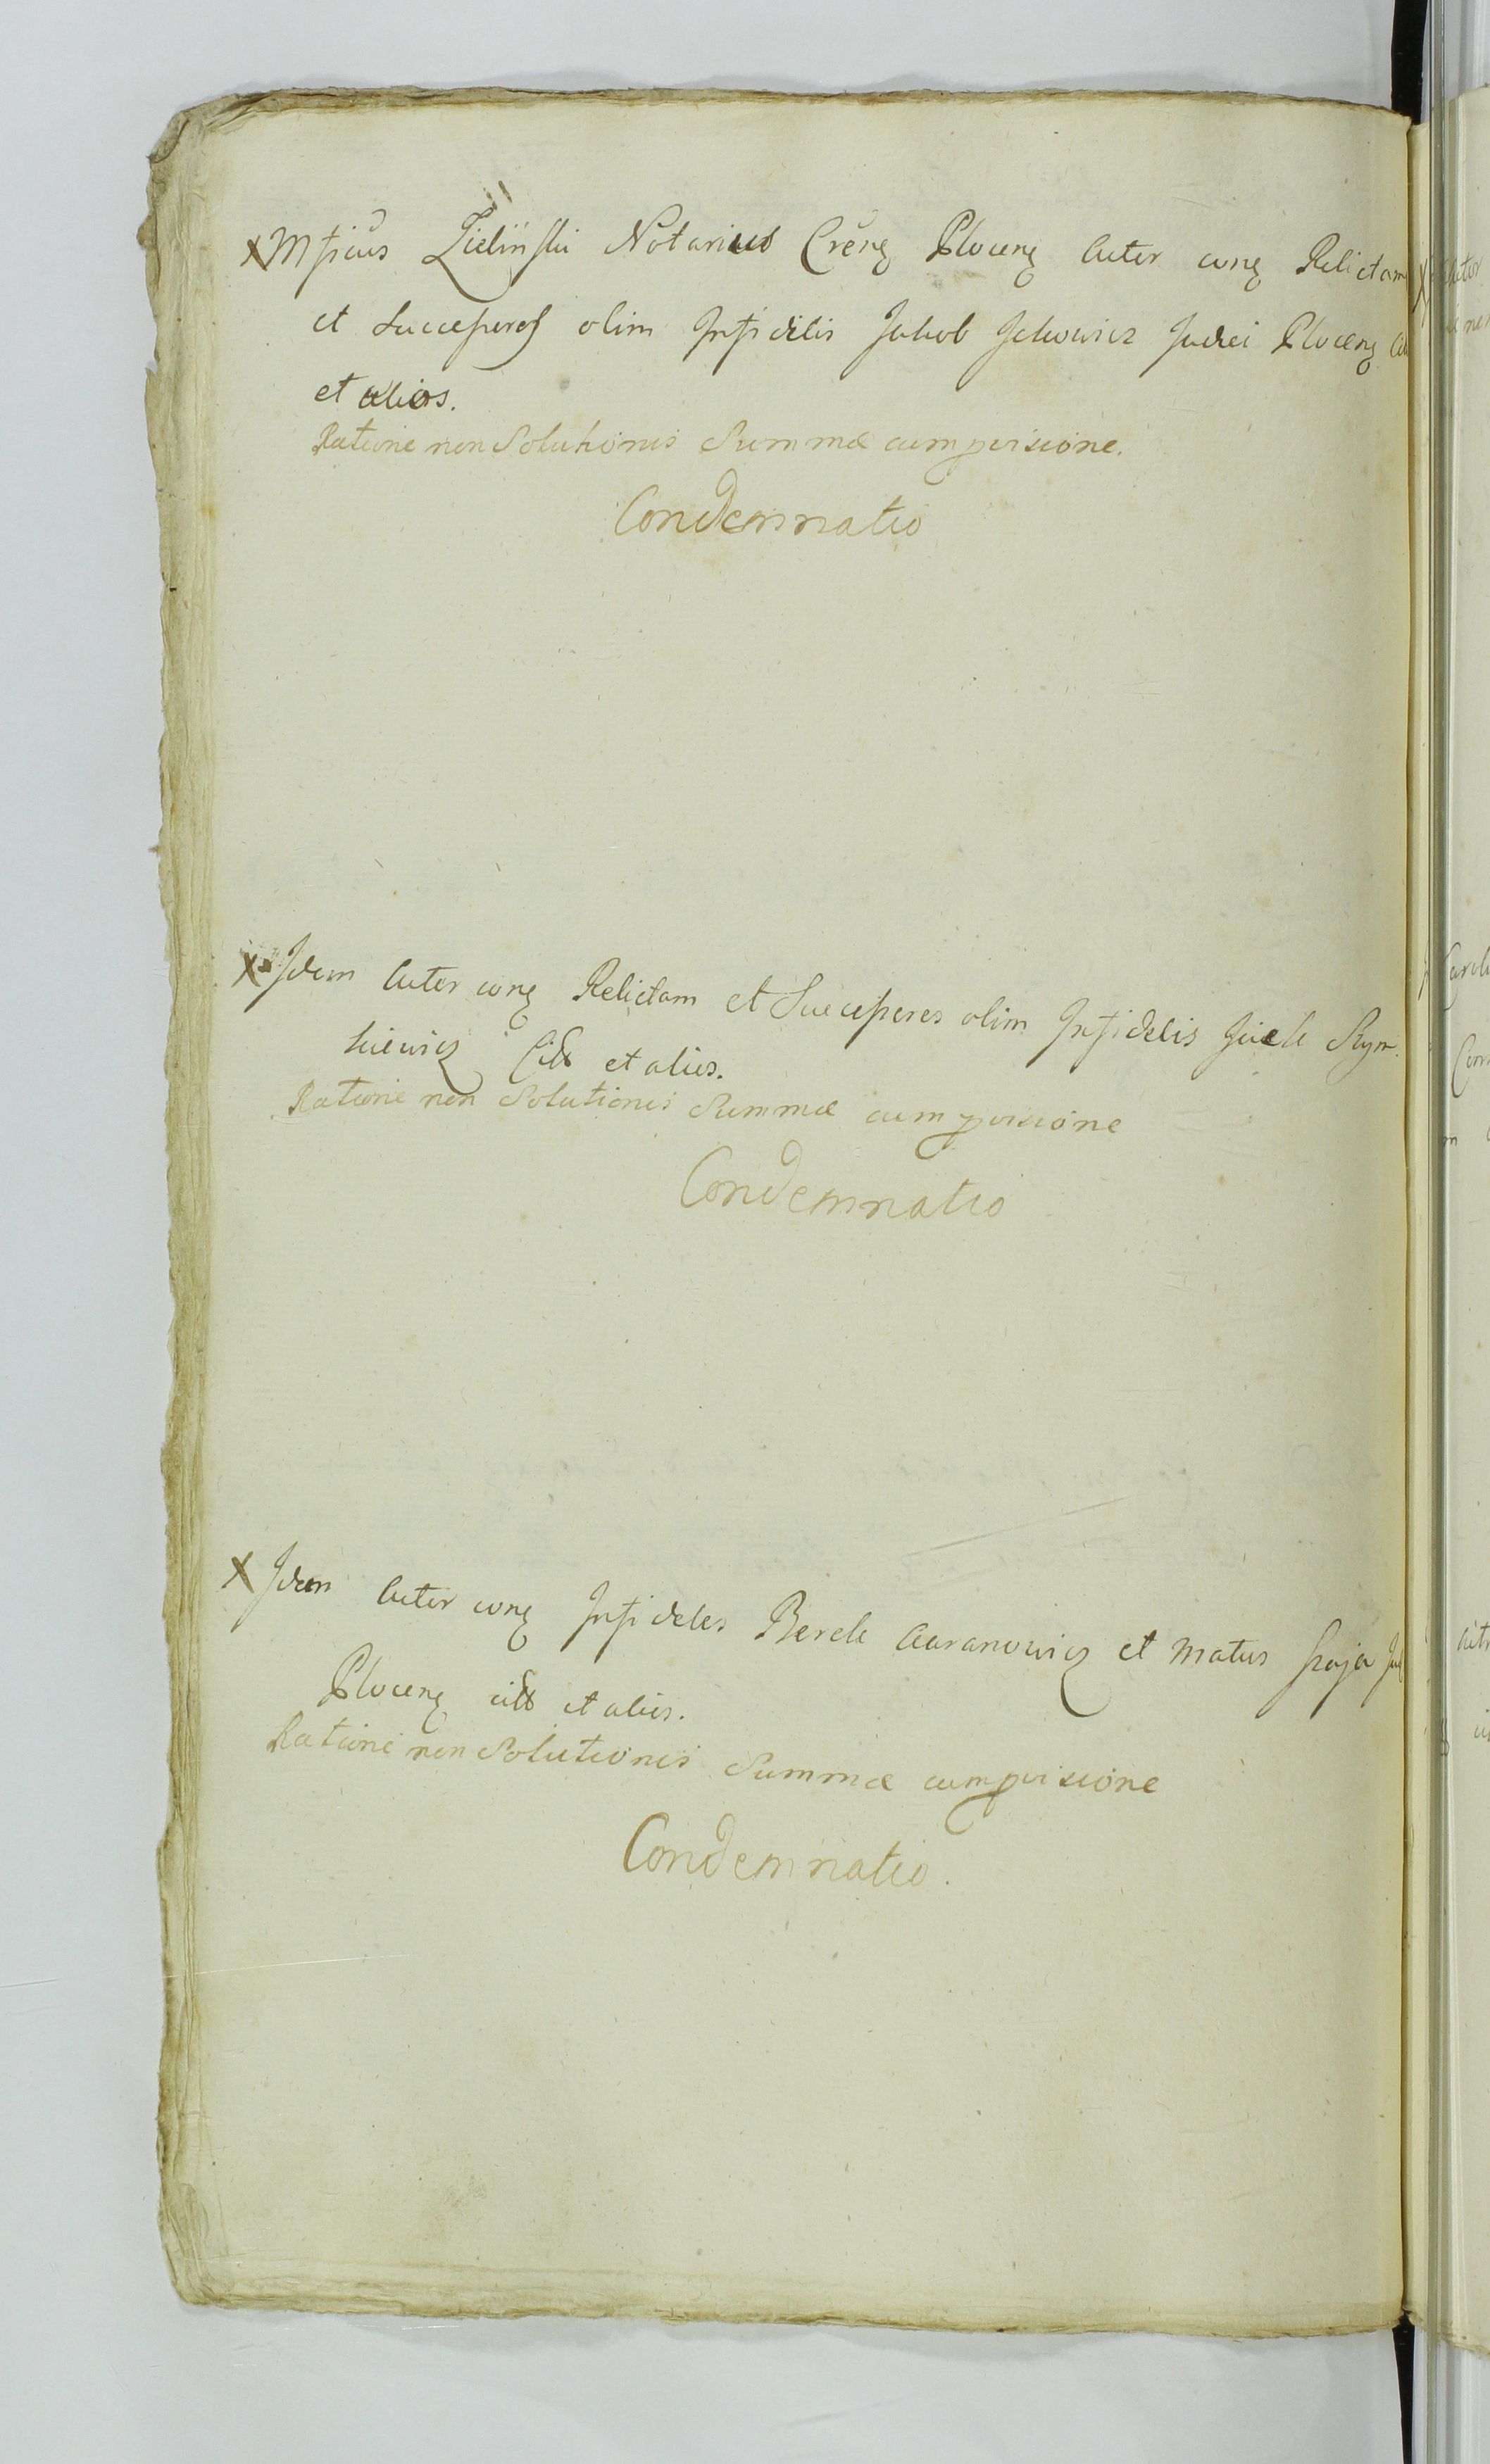 x Mficus Zieliński Notarius Crens Plocens Actor cons Relictam
et Successores olim Infidelis Jakob Jckowicz Judei Plocens
et alios.
Ratione non Solutionis Summæ cum provisione.
Condemnatio
x Idem Actor cons Relictam et Successores olim Infidelis Szym
kiewicz Citt et alios.
Ratione non Solutionis Summæ cum provisione
Condemnatio
x Idem Actor cons Infideles Berek Aaranowicz et Matus Jud
Plocens citt et alios.
Ratione non Solutionis Summæ cum provisione
Condemnatio.